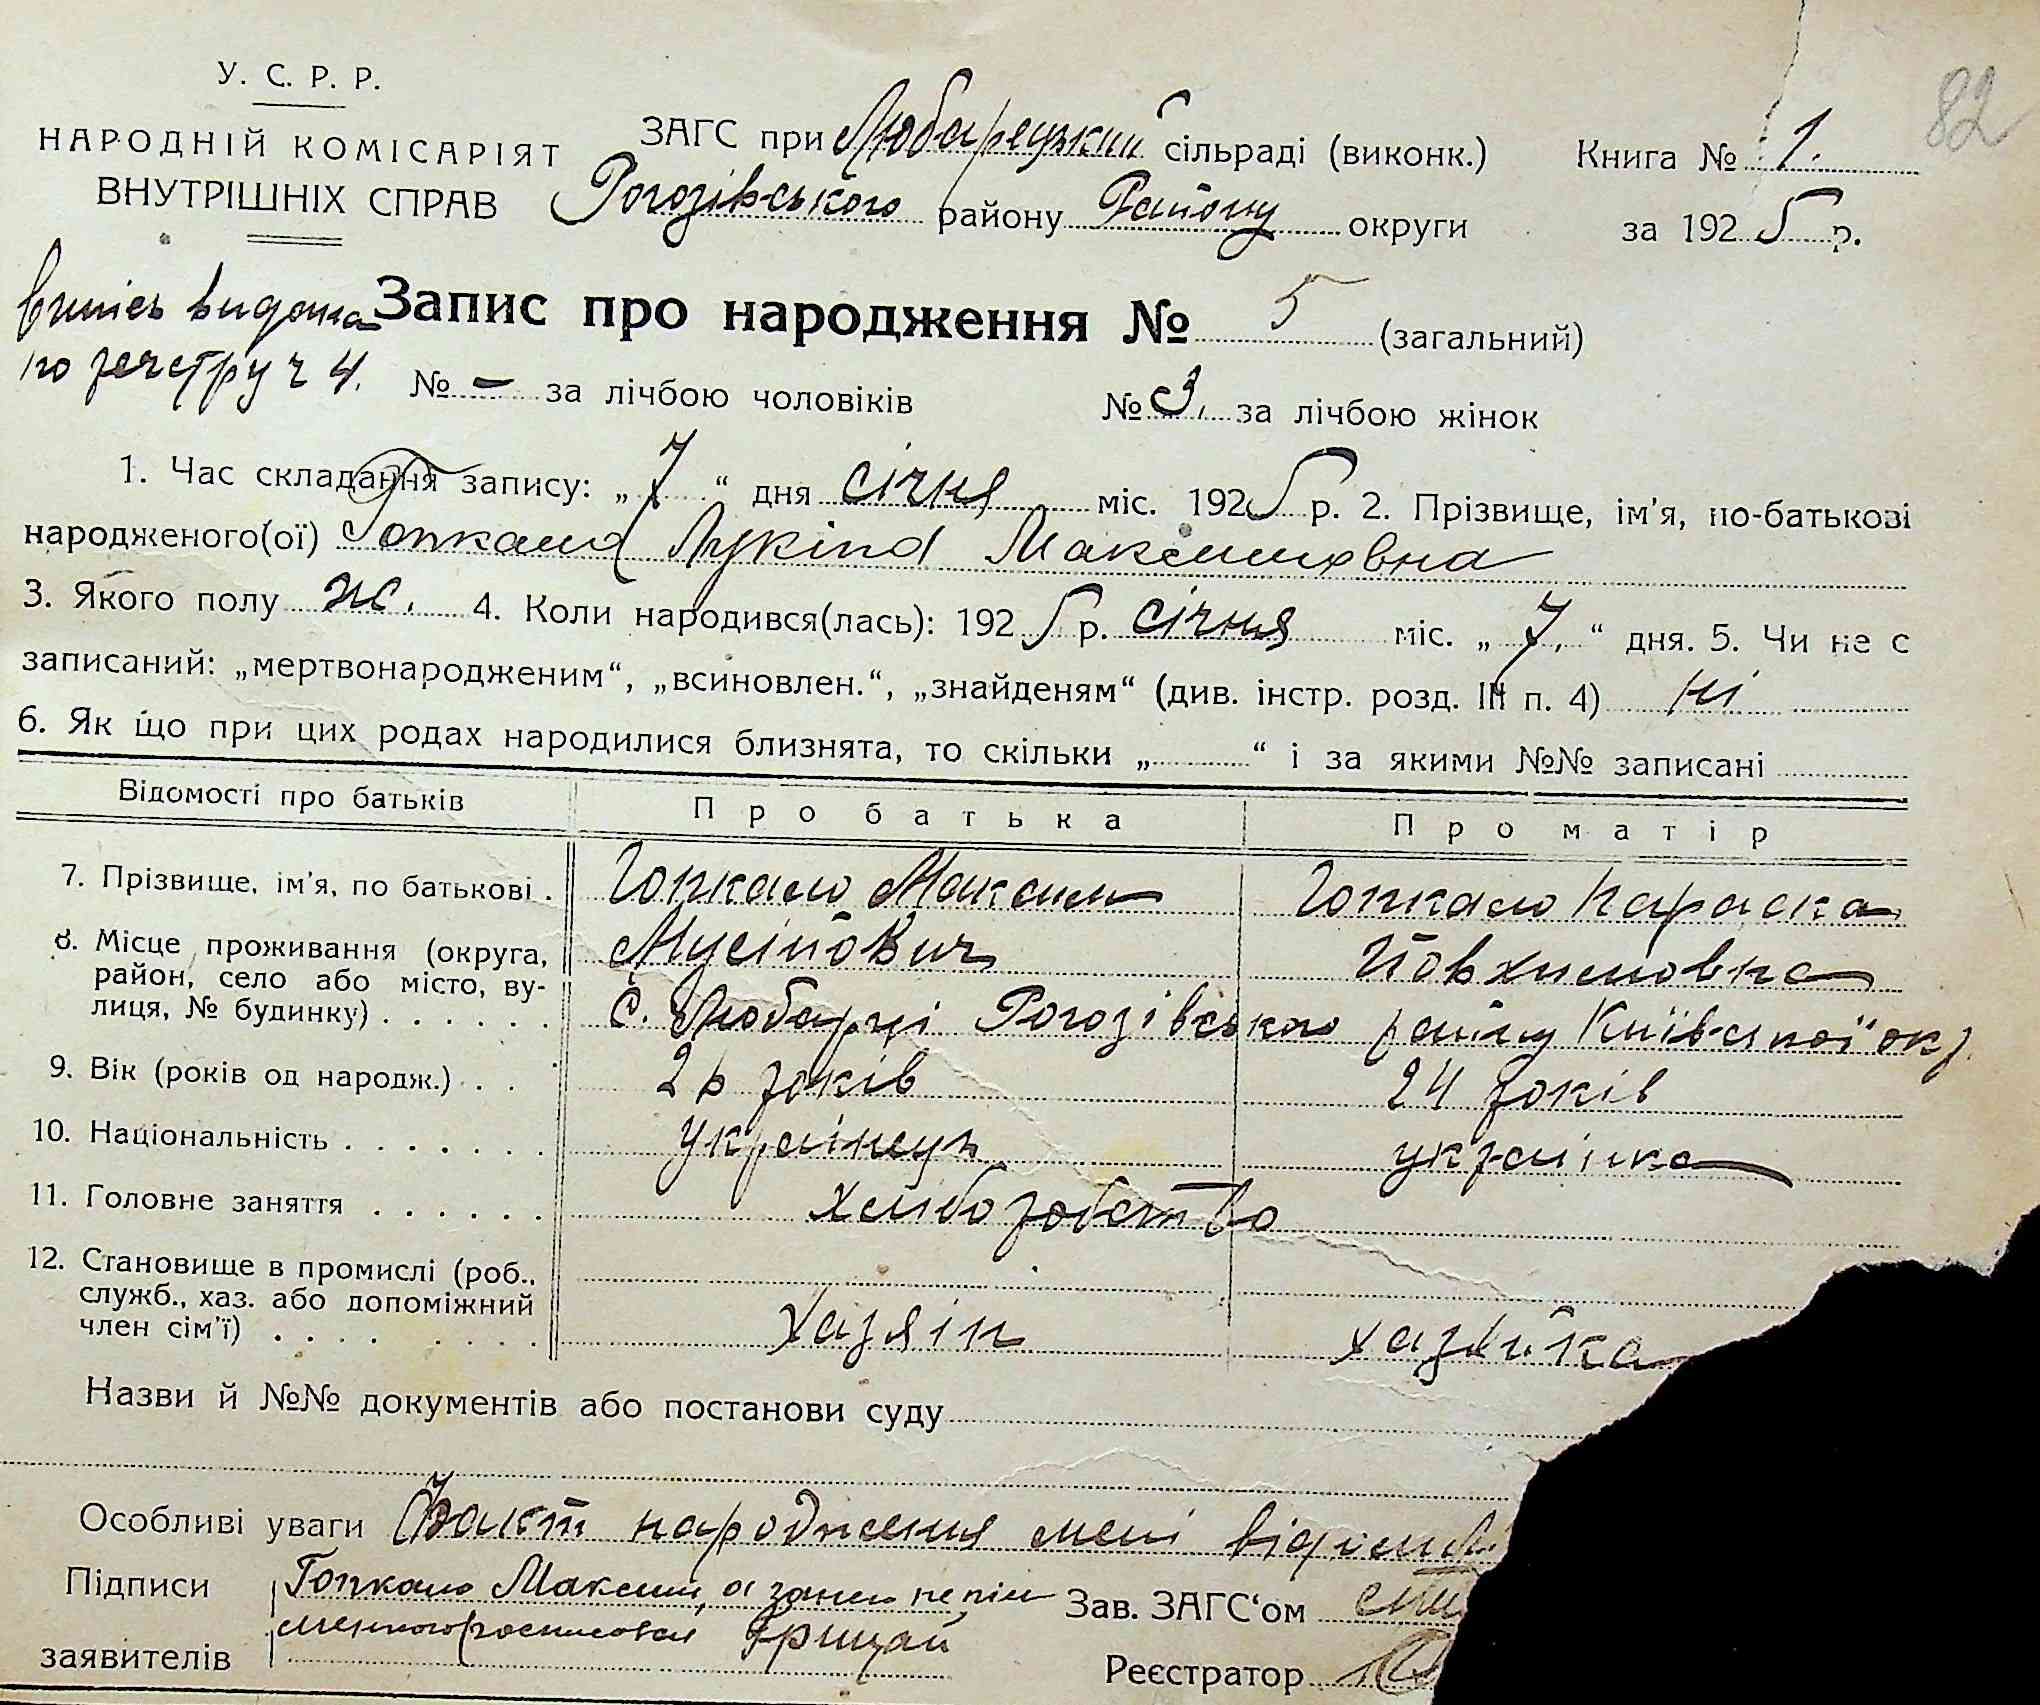 82
У. С. Р. Р.
НАРОДНІЙ КОМІСАРІЯТ
ВНУТРІШНІХ СПРАВ
ЗАГС при Любарецький сільраді (виконк.)
Рогозівського району Району округи
Книга № 1.
за 1925 р.
випісь видана
по реєстру ч 4.
Запис про народження № 5 (загальний)
№ – за лічбою чоловіків № 3. за лічбою жінок
1. Час складання запису: „7“ дня січня міс. 1925 р. 2. Прізвище, ім'я, по-батькові
народженого(ої) Гопкало Лукіна Максимовна
3. Якого полу ж. 4. Коли народився(лась): 1925 р. січня міс. „7.“ дня. 5. Чи не є
записаний: „мертвонародженим“, „всиновлен.“, „знайденям“ (див. інстр. розд. III п. 4) ні
6. Як що при цих родах народилися близнята, то скільки „ “ і за якими №№ записані
Відомості про батьків Про батька Про матір
7. Прізвище, ім'я, по батькові . Гопкало Максим Гопкало Параска
Мусійович Йовхимовна
8. Місце проживання (округа,
район, село або місто, ву-
лиця, № будинку) . . . . . . С. Любарці Рогозівського району Київської окр.
9. Вік (років од народж.) . . . 26 років 24 років
10. Національність . . . . . . . українець українка
11. Головне заняття . . . . . . хліборобство
12. Становище в промислі (роб.,
служб., хаз. або допоміжний
член сім'ї) . . . . . . . . хазяін хазяйка
Назви й №№ документів або постанови суду
Особливі уваги Факт народження мені
Підписи Гопкало Максим, а за него непісь
менного росписовся Грицай
заявителів
Зав. ЗАГС'ом
Реєстратор